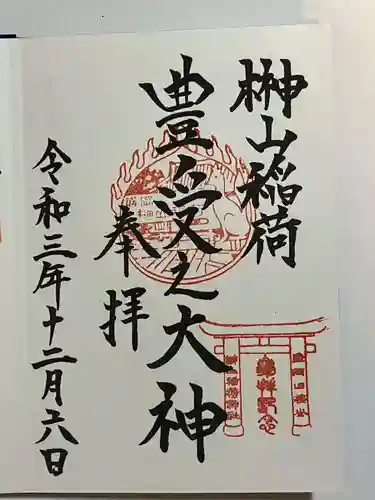 榊山稲荷
豊受之大神
奉拝
令和三年十二月六日